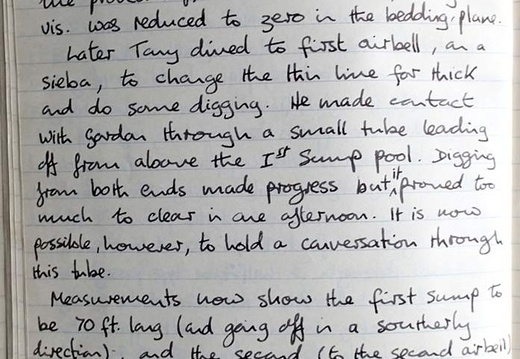 vis. was reduced to zero in the bedding-plane.
Later Tony dived to first airbell, on a
sieba, to change the thin line for thick
and do some digging. He made contact
with Gordon through a small tube leading
off from above the Ist Sump pool. Digging
from both ends made progress but it proved too
much to clear in one afternoon. It is now
possible, however, to hold a conversation through
this tube.
Measurements now show the first sump to
be 70 ft. long (and going off in a southerly
direction), and the second (to the second airbell)